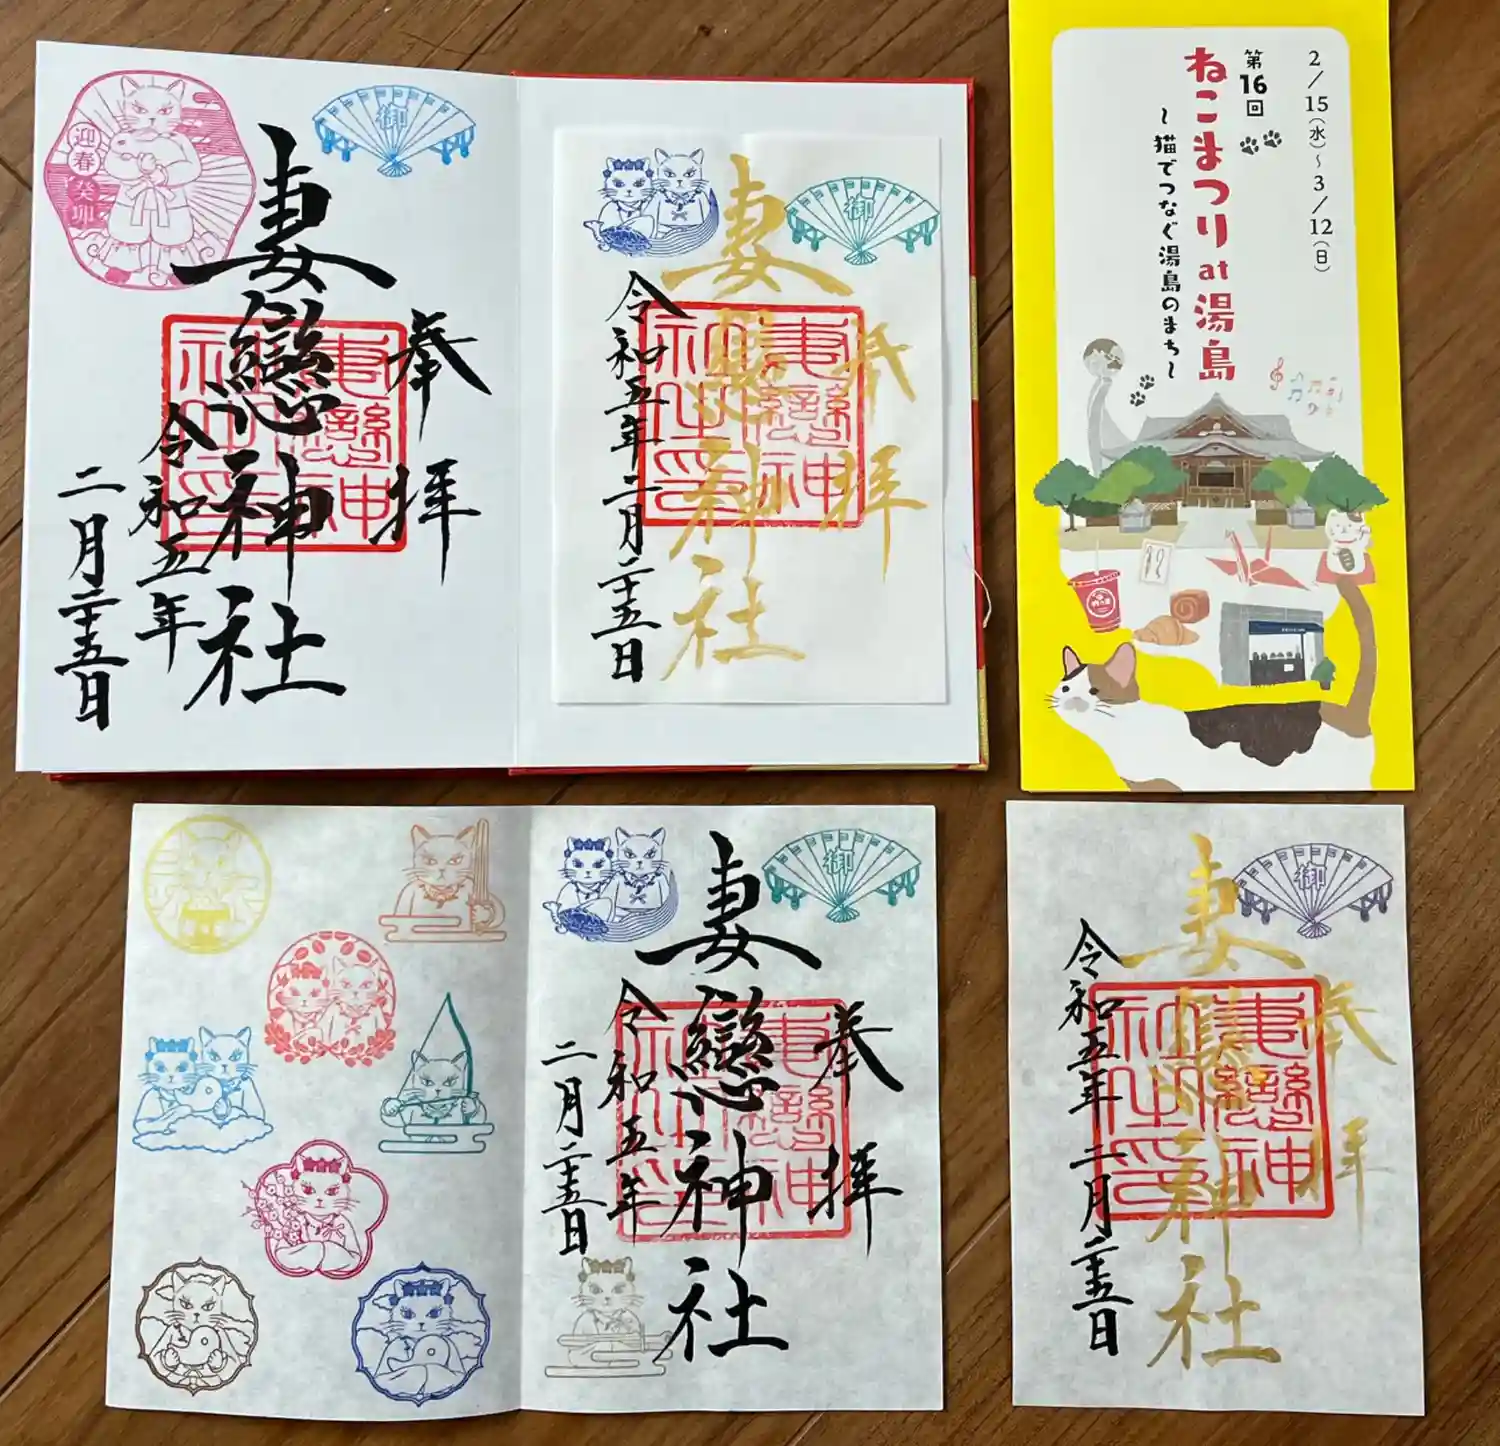 奉拝
妻戀神社
令和五年
二月二十五日
迎春
癸卯
御
妻戀神社印
奉拝
妻戀神社
令和五年二月二十五日
御
妻戀神社印
2/15(水)~3/12(日)
第16回
ねこまつりat湯島
~猫でつなぐ湯島のまち~
奉拝
妻戀神社
令和五年
二月二十五日
御
妻戀神社印
奉拝
妻戀神社
令和五年二月二十五日
御
妻戀神社印